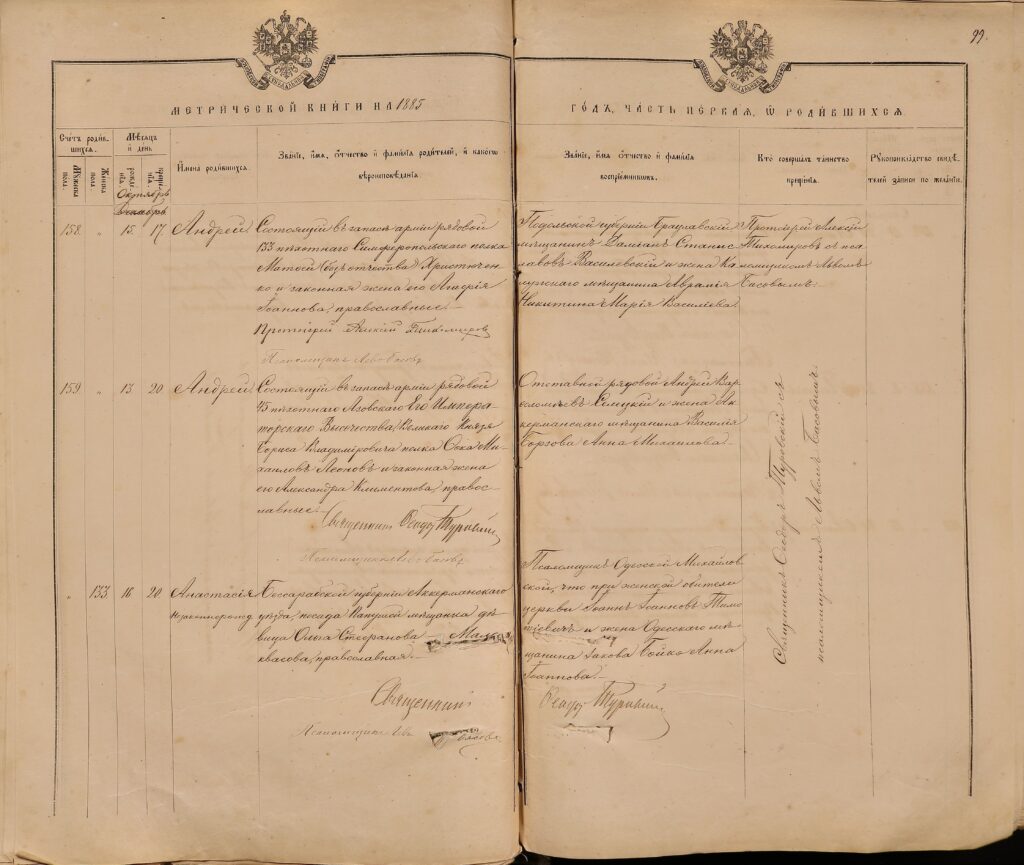 99.
МЕТРИЧЕСКОЙ КНИГИ НА 1885
ГОДЪ, ЧАСТЬ ПЕРВАЯ, Ѡ РОДИВШИХСЯ.
Счетъ родив-
шихся.
Мужеска
пола
Женска
пола
Мѣсяцъ
и день
рожде-
нія.
креще-
нія.
Имена родившихся.
Званіе, имя, отчество и фамилія родителей, и какого
вѣроисповѣданія.
Званіе, имя отчество и фамилія
воспріемниковъ.
Кто совершалъ таинство
крещенія.
Рукоприкладство свидѣ-
телей записи по желанію.
Октябрь
Декабрь
158. " 15. 17. Андрей
Состоящій въ запасѣ арміи рядовой
133 пѣхотнаго Симферопольскаго полка
Матѳей (безъ отчества) Христючен-
ко и законная жена его Агафія
Іоаннова, православные.
Протоіерей Алексій Тихомировъ
Псаломщикъ Левъ Басовъ
Подольской губерніи Брацлавскій
мѣщанинъ Даміанъ Станис-
лавовъ Василевскій и жена Ка-
лужскаго мѣщанина Аврамія
Никитина Марія Василіева.
Протоіерей Алексій
Тихомировъ съ пса-
ломщикомъ Львомъ
Басовымъ.
159 " 13. 20. Андрей
Состоящій въ запасѣ арміи рядовой
45 пѣхотнаго Азовскаго Его Импера-
торскаго Высочества Великаго Князя
Бориса Владиміровича полка Сука Ми-
хаиловъ Леоновъ и законная жена
его Александра Климентова, право-
славные.
Священникъ Ѳеодоръ Туровскій
Псаломщикъ Левъ Басовъ
Отставной рядовой Андрей Вар-
ѳоломеевъ и жена Ак-
керманскаго мѣщанина Василія
Борзова Анна Михаилова.
Священникъ Ѳеодоръ Туровскій съ
псаломщикомъ Львомъ Басовымъ.
" 133. 16 20. Анастасія
незаконнорожд
Бессарабской губерніи Аккерманскаго
уѣзда, посада Папушей мѣщанка дѣ-
вица Ольга Стефанова Мал
квасова, православная.
Священникъ
Псаломщикъ Левъ Басовъ
Псаломщикъ Одесской Михайлов-
ской, что при женской обители
церкви Іоаннъ Іоанновъ Тимо-
ѳіевичъ и жена Одесскаго мѣ-
щанина Іакова Бойко Анна
Іоаннова.
Ѳеодоръ Туровскій